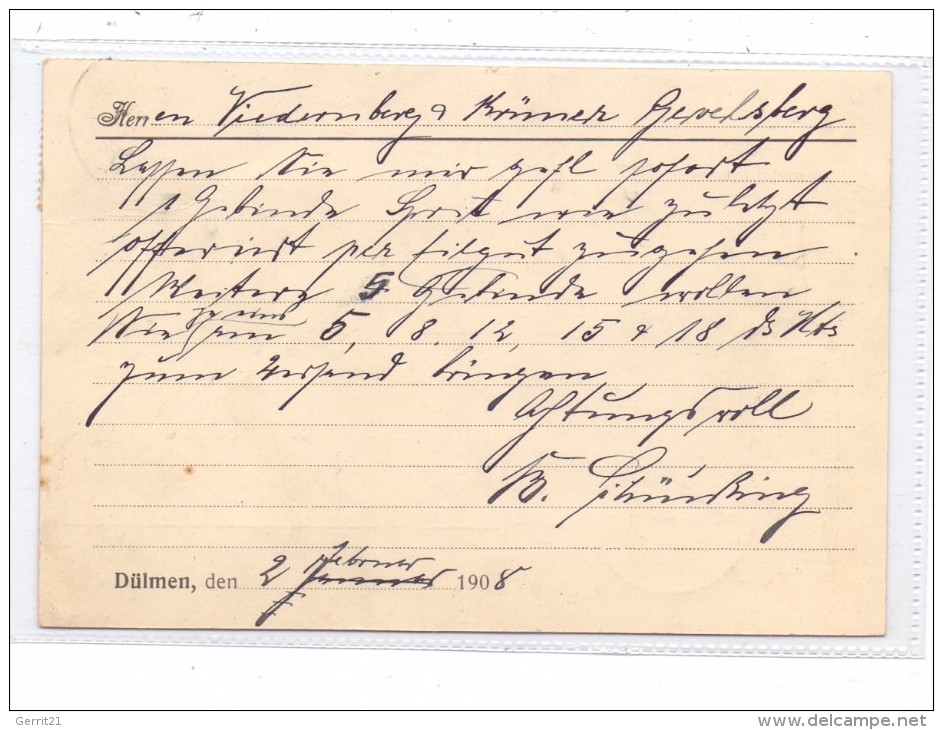 Herren Niedernberg & Krüner Gevelsberg
Lassen Sie mir gefl sofort
1 Gebinde Sprit wie zuletzt
offeriert per Eilgut zugehen
Weitere 5 Gebinde wollen
je eins
Sie am 5, 8. 12, 15 & 18 ds Mts
zum Versand bringen
Achtungsvoll
Februar
Dülmen, den 2 Januar 1908
Gerrit21
www.delcampe.net